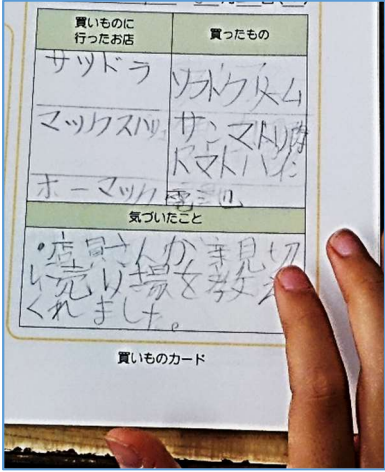 買いものに
行ったお店
買ったもの
サツドラ
ソフトクリーム
マックスバリ
サンマトリ肉
トマト
ホーマック
電池
気づいたこと
・店員さんが親切
に売り場を教え
くれました。
買いものカード